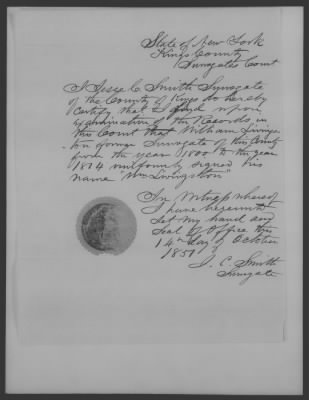 State of New York
Kings County
Surrogates Court
I Jesse C. Smith Surrogate
of the County of Kings do hereby
Certify that I find upon
Examination of the Records in
this Court that William Livings
ton former Surrogate of this County
from the year 1800 to the year
1814 uniformly signed his
name "Wm Livingston"
In Witness whereof
I have hereunto
set my hand and
Seal of Office this
14th day of October
1851
J. C. Smith
Surrogate